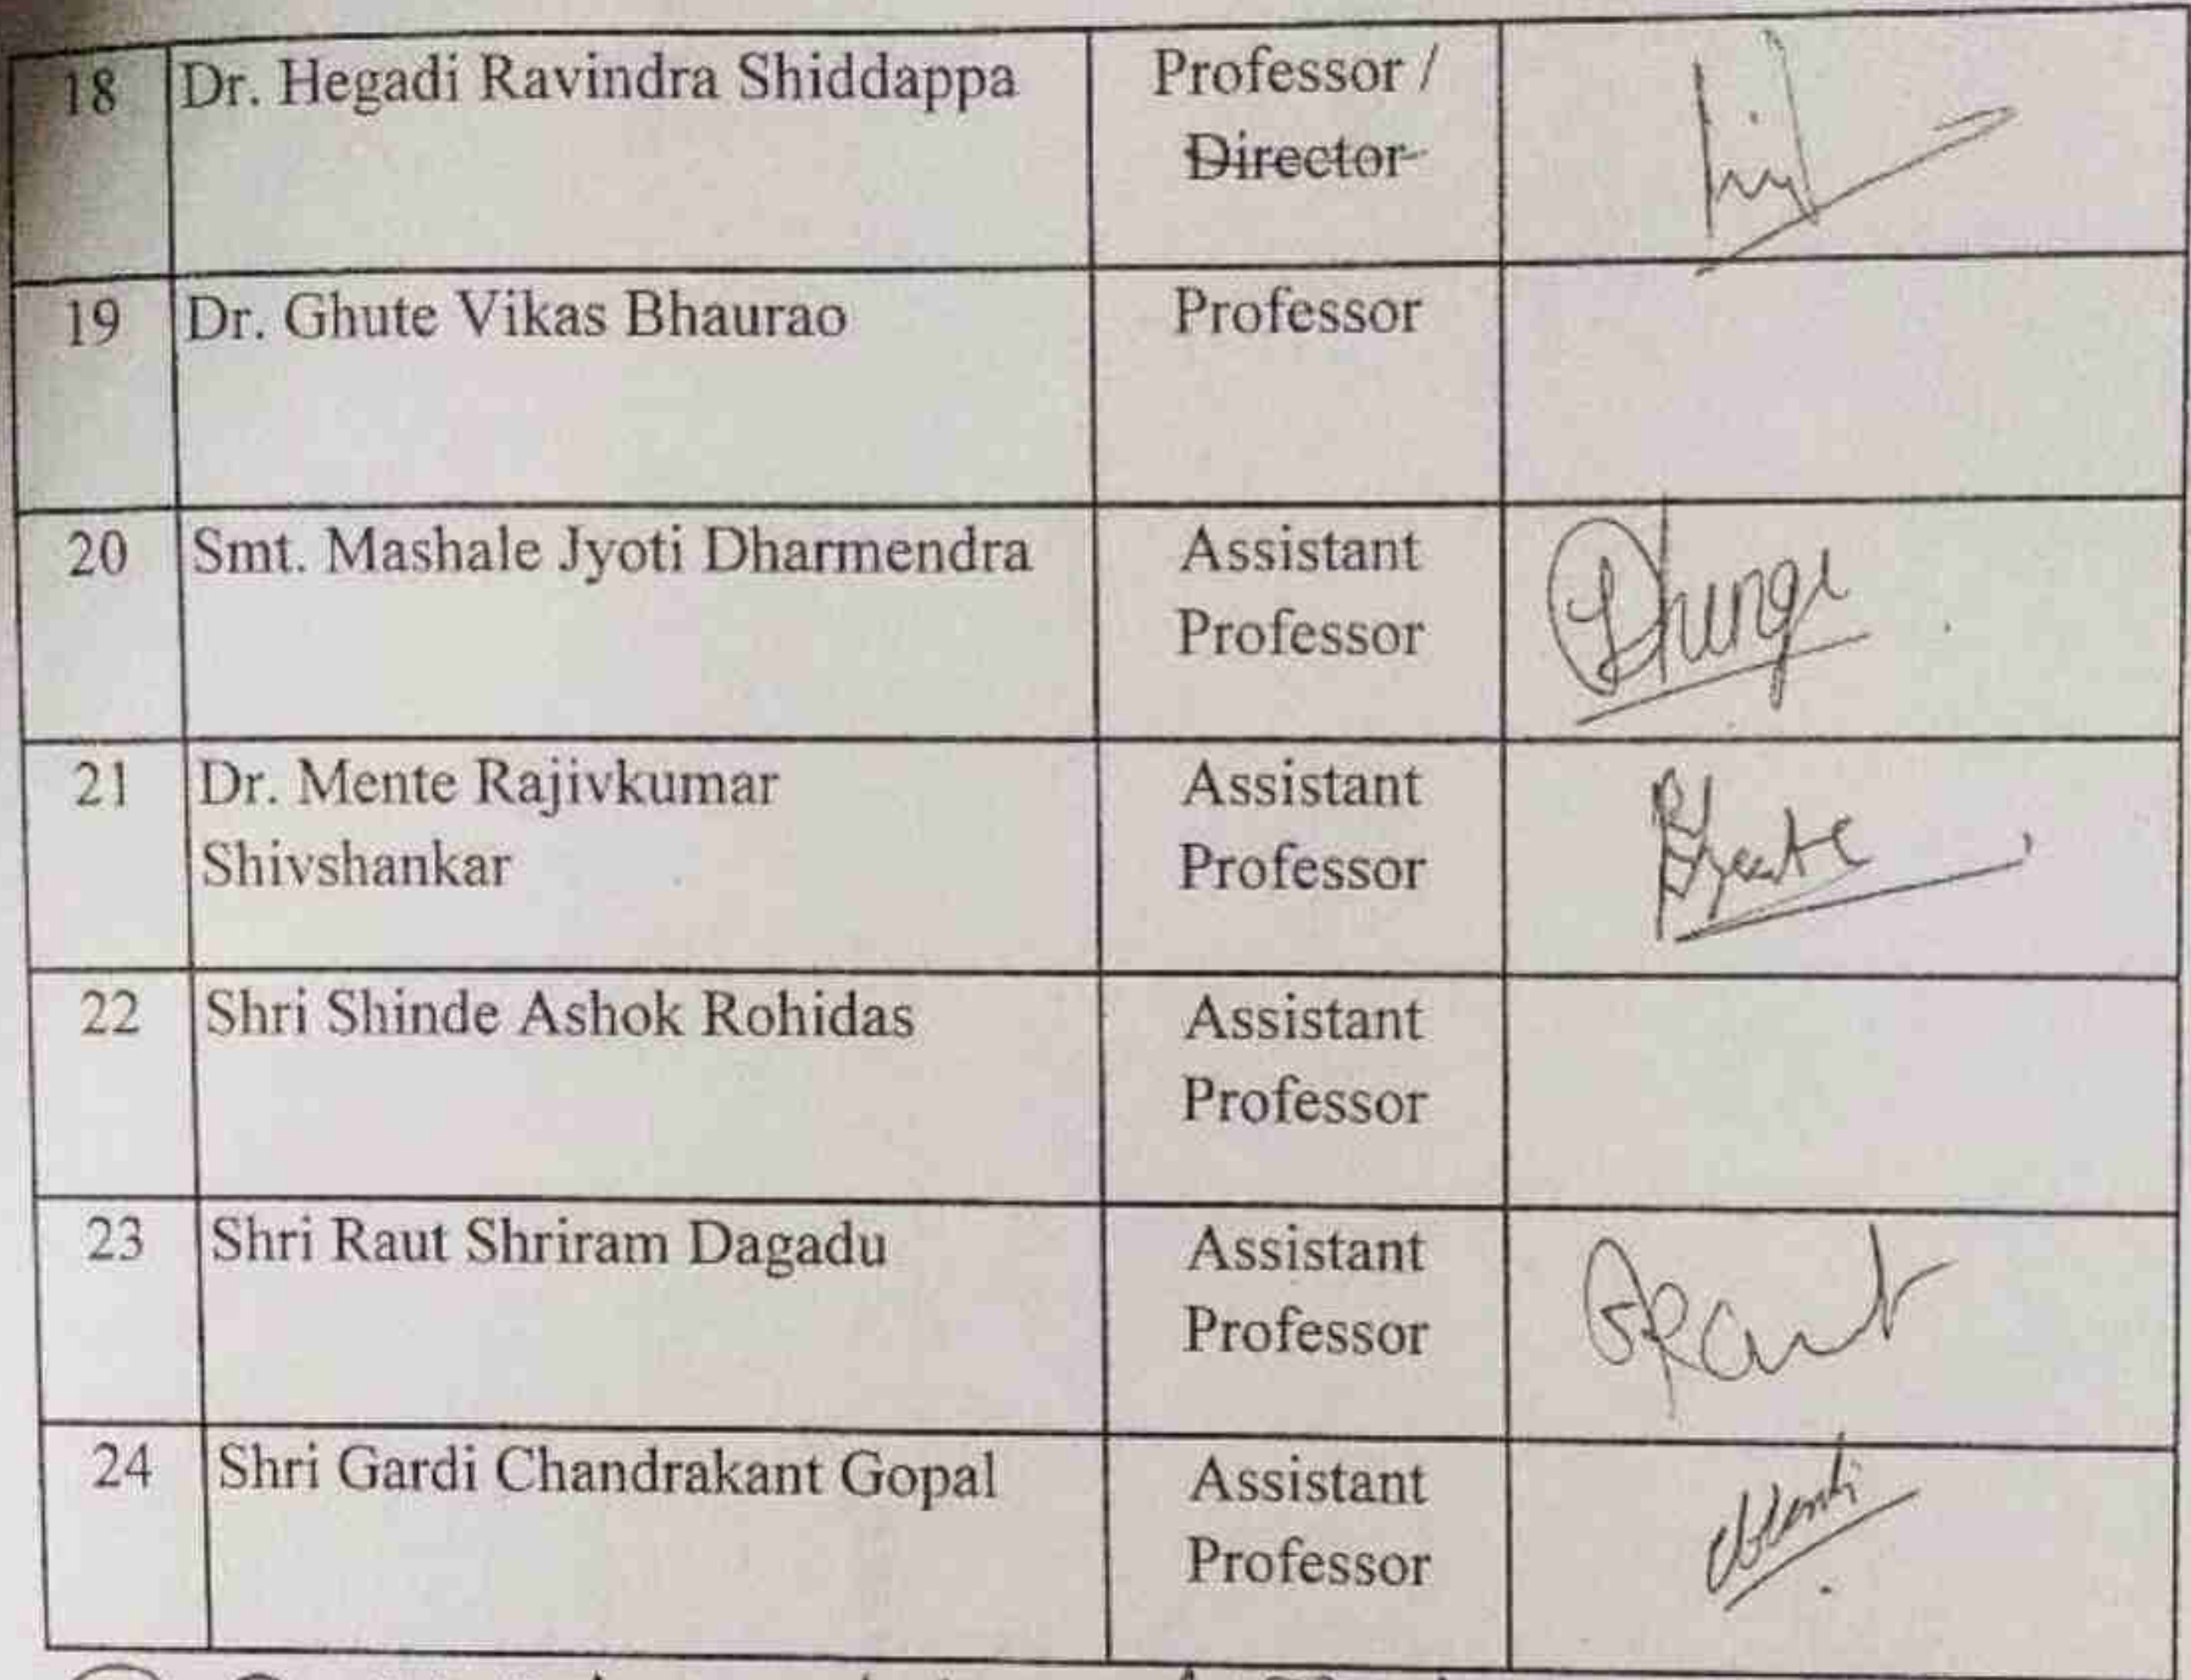 18 Dr. Hegadi Ravindra Shiddappa Professor /
Director
19 Dr. Ghute Vikas Bhaurao Professor
20 Smt. Mashale Jyoti Dharmendra Assistant
Professor
21 Dr. Mente Rajivkumar Assistant
Shivshankar Professor
22 Shri Shinde Ashok Rohidas Assistant
Professor
23 Shri Raut Shriram Dagadu Assistant
Professor SRaut
24 Shri Gardi Chandrakant Gopal Assistant
Professor